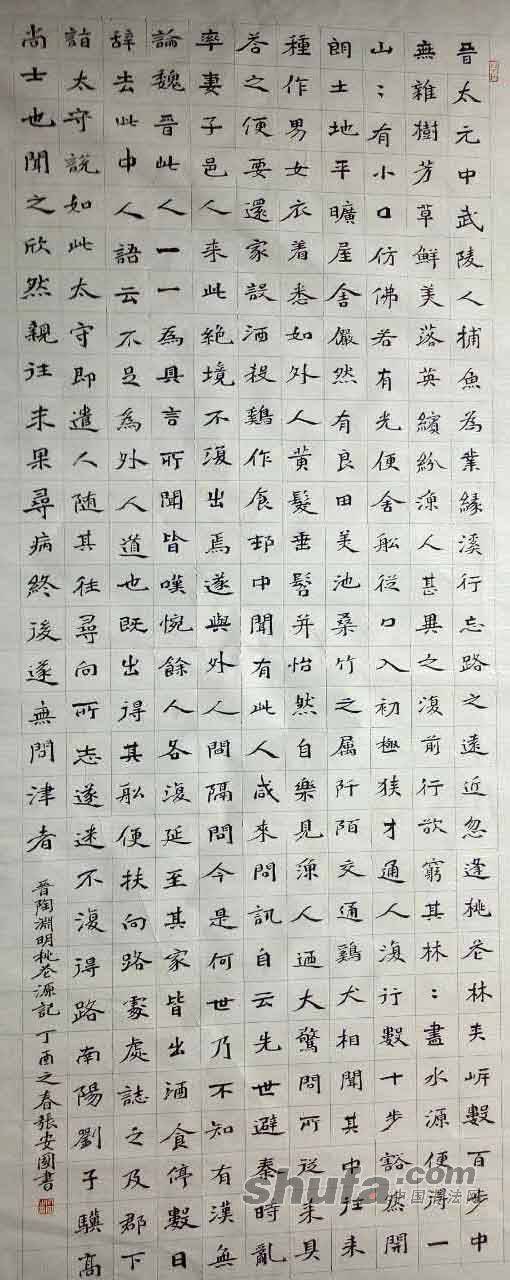 晋太元中武陵人捕魚為業緣溪行忘路之遠近忽逢桃花林夾岸數百步中
無雜樹芳草鮮美落英繽紛漁人甚異之復前行欲窮其林〻盡水源便得一
山〻有小口仿佛若有光便舍船從口入初極狹才通人復行數十步豁然開
朗土地平曠屋舍儼然有良田美池桑竹之属阡陌交通鷄犬相聞其中往来
種作男女衣着悉如外人黄髮垂髫并怡然自樂見漁人迺大驚問所從来具
荅之便要還家設酒殺鷄作食邨中聞有此人咸來問訊自云先世避秦時亂
率妻子邑人来此絶境不復出焉遂與外人間隔問今是何世乃不知有漢無
論魏晋此人一一為具言所聞皆嘆惋餘人各復延至其家皆出酒食停數日
辞去此中人語云不足為外人道也既出得其船便扶向路處處誌之及郡下
詣太守説如此太守即遣人随其往尋向所志遂迷不復得路南陽劉子驥高
尚士也聞之欣然親往未果尋病終後遂無問津者
晋陶淵明桃花源記 丁酉之春張安國書
shufa.com
中国书法网